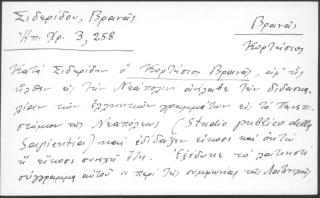 Σιδερίδου, Βρανᾶς
Ἠπ. Χρ. 3, 258
Βρανᾶς
Κορτήσιος
Κατὰ Σιδερίδην ὁ Κορτήσιος Βρανᾶς, ἀφ' ἧς
ἦλθεν εἰς τὴν Νεάπολιν ἀνέλαβε τὴν διδασκα-
λίαν τῶν ἑλληνικῶν γραμμάτων εἰς τὸ Πανεπι-
στήμιον τῆς Νεαπόλεως (Studio publico della
Sapientia) καὶ ἐδίδαξεν εἴκοσι καὶ ὀκτὼ
ἢ εἴκοσι συνεχῆ ἔτη. Ἐξέδωκε τὸ
σύγγραμμα αὐτοῦ περὶ τῆς συμφωνίας τῆς